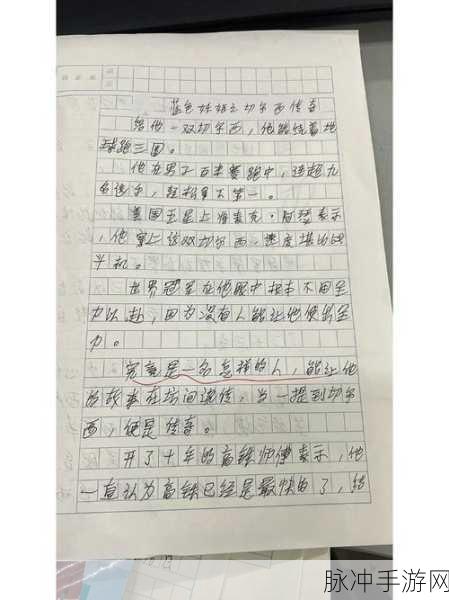 蓝色妖姬之切尔西传奇
给他一双切尔西，他能绕着地
球跑三圈。
他在男子百米赛跑中，连超九
名选手，轻松拿下第一。
美国五星上将麦克·阿瑟表示
，他穿上这双切尔西，速度堪比战
斗机。
世界冠军在他眼中根本不用全
力以赴，因为没有人能让他使出全
力。
究竟是一名怎样的人，能让他
的故事在坊间流传，当一提到切尔
西，便是传奇。
开了十年的高铁师傅表示，他
一直认为高铁已经是最快的了，结
脉冲手游网